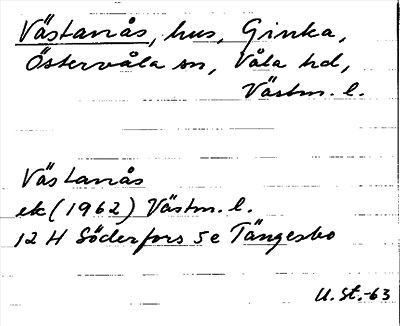 Västanås, hus, Ginka,
Östervåla sn, Våla hd,
Västm. l.
Västanås
ek (1962) Västm. l.
12 H Söderfors 5e Tängesbo
U. St.-63